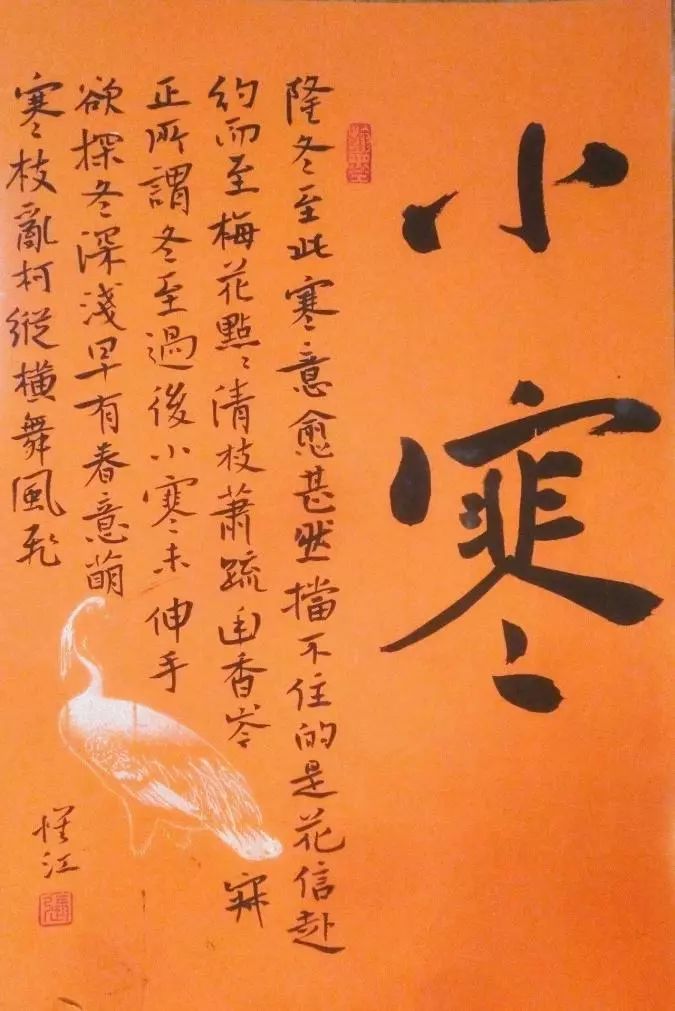 小寒
隆冬至此寒意愈甚然擋不住的是花信赴
約而至梅花點點清枝蕭疏幽香岑
寂
正所謂冬至過後小寒未伸手
欲探冬深淺早有春意萌
寒枝亂柯縱橫舞風飛
江
張